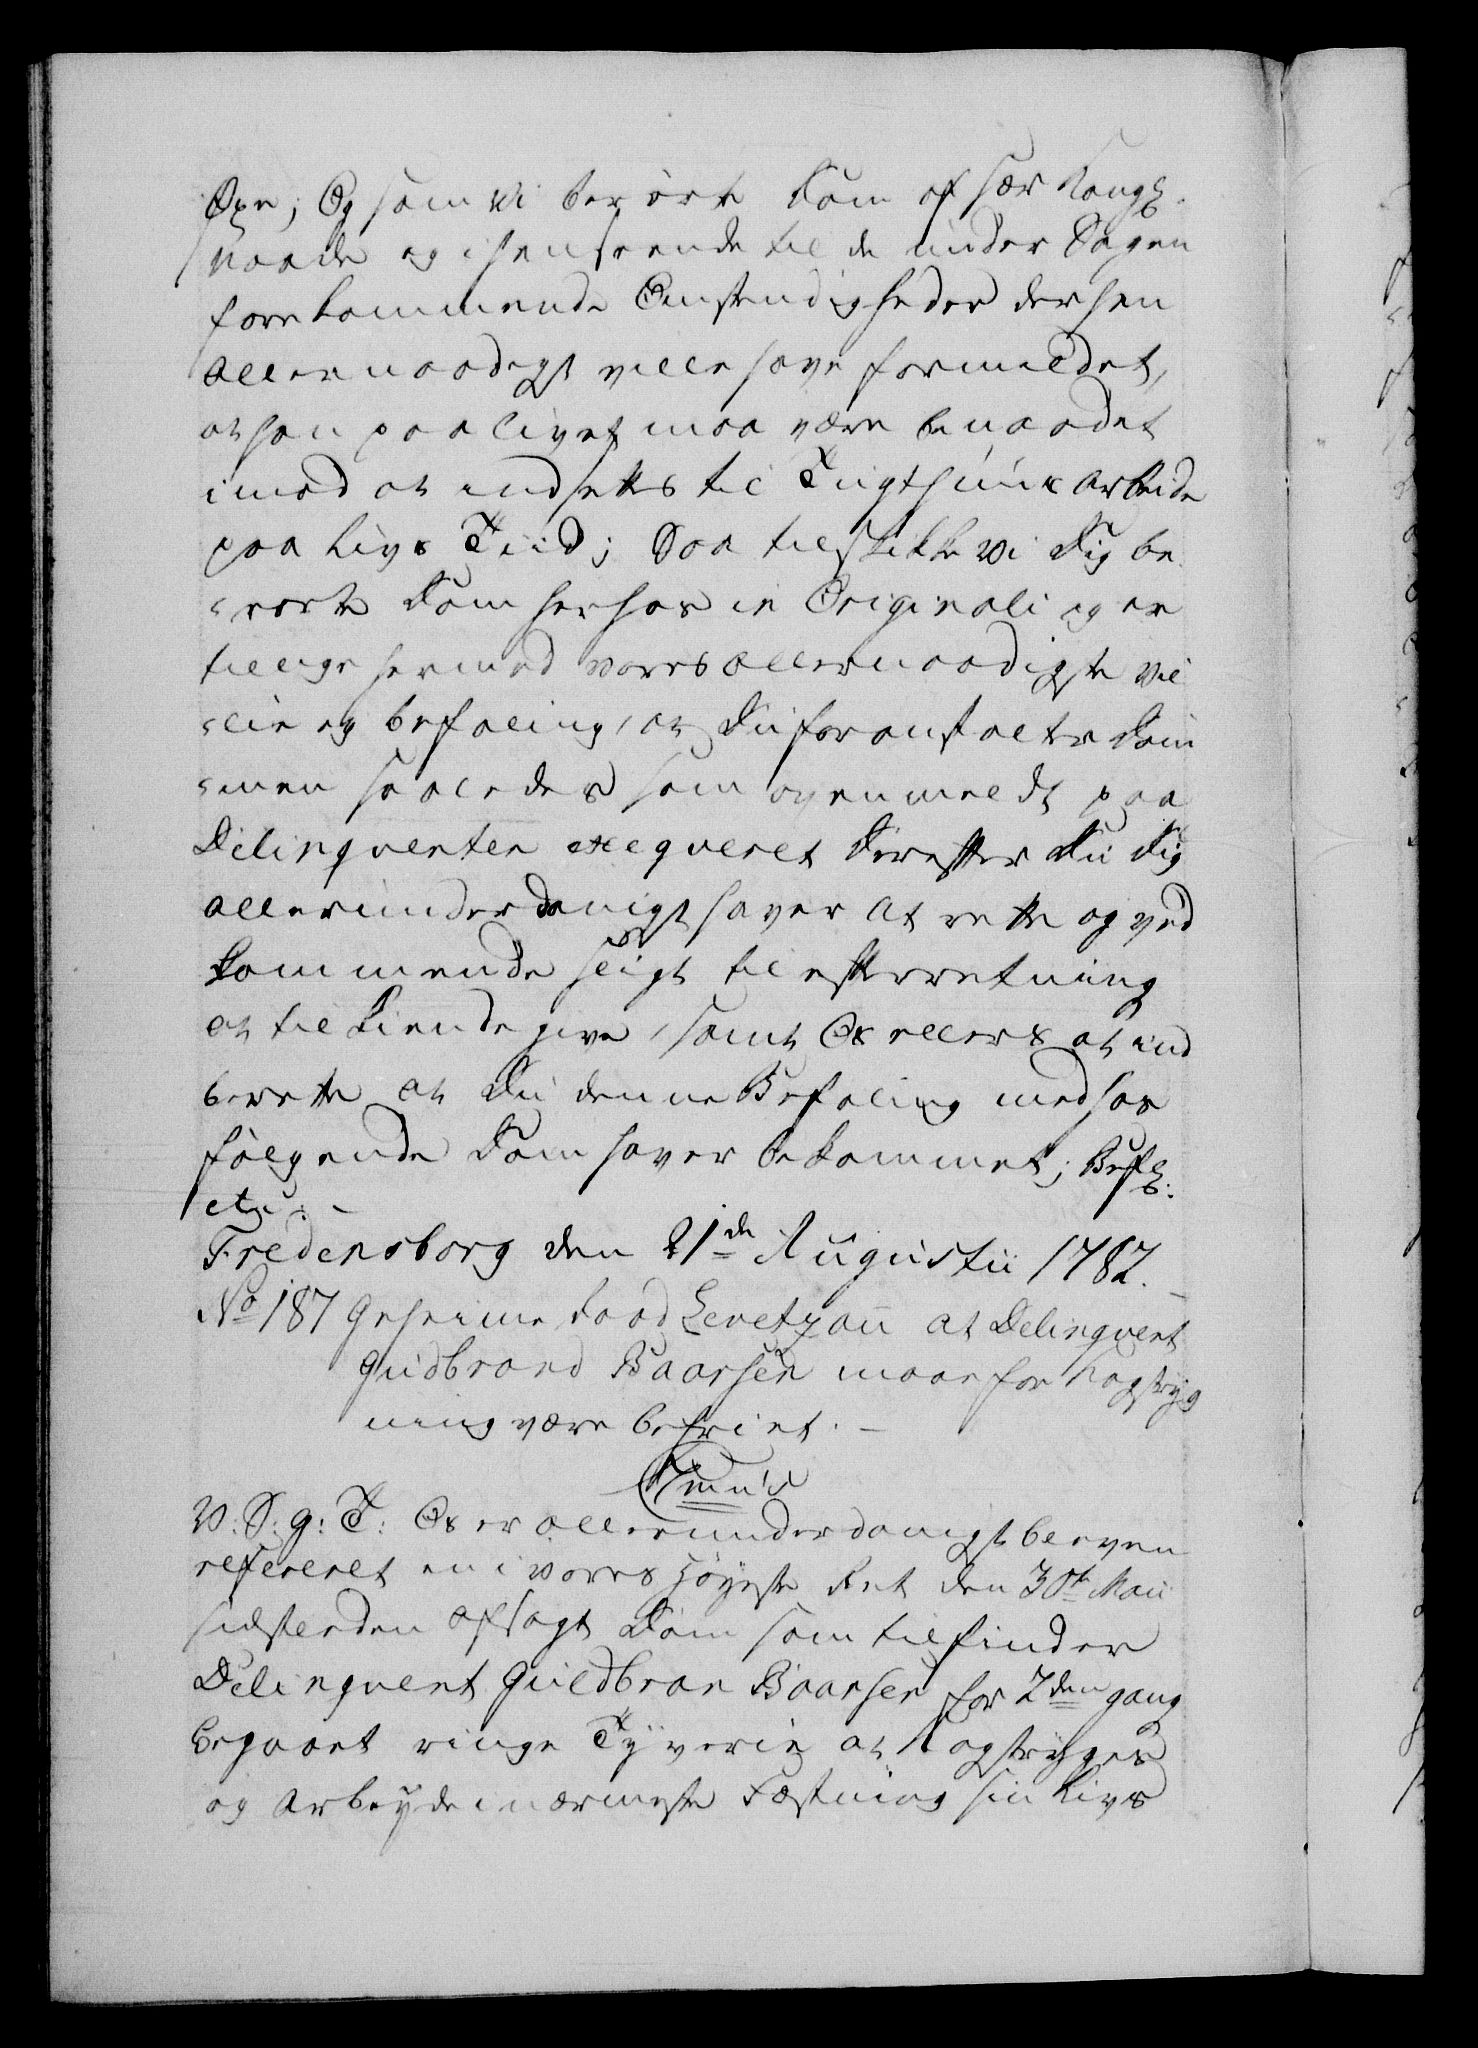 Øxe; Og som vi berørte Dom af sær Kongl.
Naade og i henseende til de under Sagen
forekommende Omstendigheder derhen
allernaadigst ville have formildet,
at han paa livet maa være benaadet
imod at indsettes til Tugthuus Arbeide
paa Livs Tiid; Saa tilskikke vi Dig be-
-rørte Dom herhos in Originali og er
tillige hermed vores allernaadigste vil
-lie og befaling, at Du foranstalter Dom
-men saaledes som ovenmeldt paa
Delinqventen exeqveret Derefter Du dig
allerunderdanigst haver at rette og ved
kommende sligt til efterretning
at tilkiende give, samt Os ellers at ind
berette at Du denne Befaling med hos
følgende Dom haver bekommet; Befl:
etc: -
Fredensborg den 21de Augustii 1782.
No 187 Geheime Raad Levetzau at Delinqvent
Gudbrand Baarsen maae for Kagstryg
ning være befriet. -
C 7mus
V: S: G: T: Os er allerunderdanigst bleven
refereret en i vores Høyeste Ret den 30te Maii
sidstleden afsagt Dom som tilfinder
Delinqvent Guldbran Baarsen for 2den gang
begaaet ringe Tyverie at Kagstryges
og Arbeyde i nærmeste Fæstning sin Livs